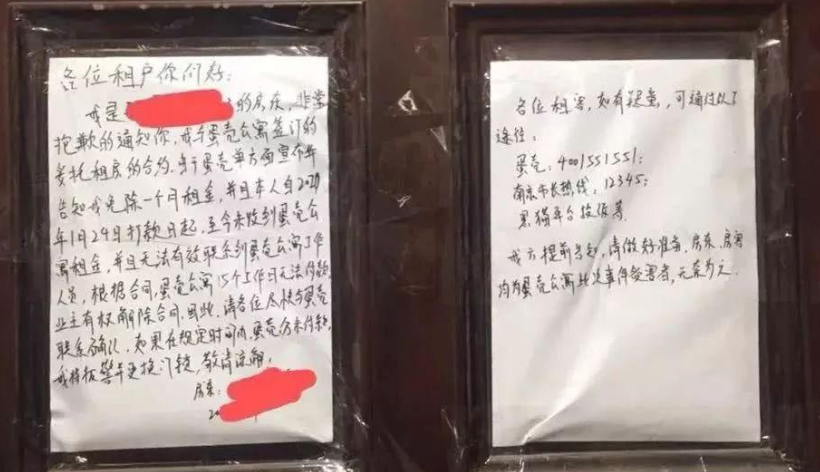 各位租户你们好：
我是
的房东，非常
抱歉的通知你，我与蛋壳公寓签订的
委托租房的合约，由于蛋壳单方面宣布并
告知我免除一个月租金，并且本人自2020
年1月24日打款日起，至今未收到蛋壳公
寓租金，并且无法有效联系到蛋壳公寓工作
人员，根据合同，蛋壳公寓15个工作日无法付款
业主有权解除合同，因此，请各位尽快与蛋壳
联系确认，如果在规定时间内，蛋壳仍未付款，
我将报警并更换门锁，敬请谅解。
房东：
各位租客，如有疑虑，可通过以下
途径：
蛋壳：4001551551；
南京市长热线：12345；
黑猫平台投诉等
我方提前告知，请做好准备，房东、房客
均为蛋壳公寓此次事件受害者，无奈为之．